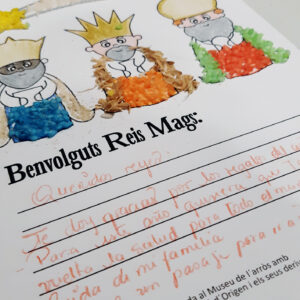 Benvolguts Reis Mags:
Queridos reyes:
Te doy gracias por los regalos del a
Para este año quisiera que
vuelva la salud para todo el mu
de mi familia
un pasaje para
da al Museu de l'arròs amb
d'Origen i els seus deriv